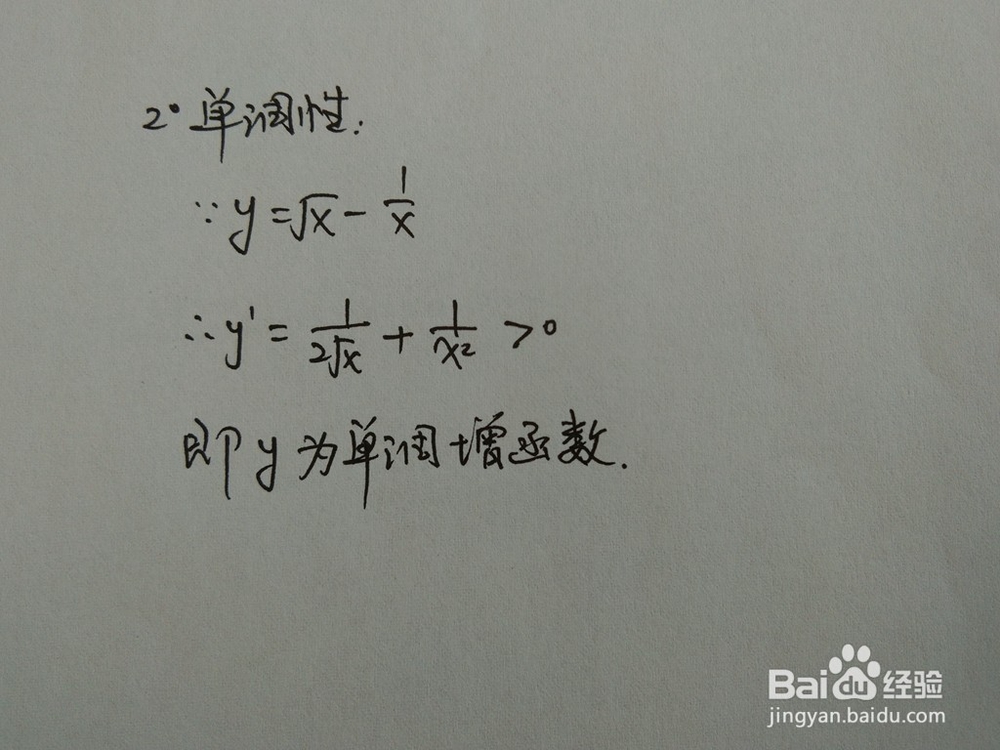 2° 单调性:
∵ y = √x - 1/x
∴ y' = 1/(2√x) + 1/x² > 0
即 y 为单调增函数.
Baidu 经验
jingyan.baidu.com